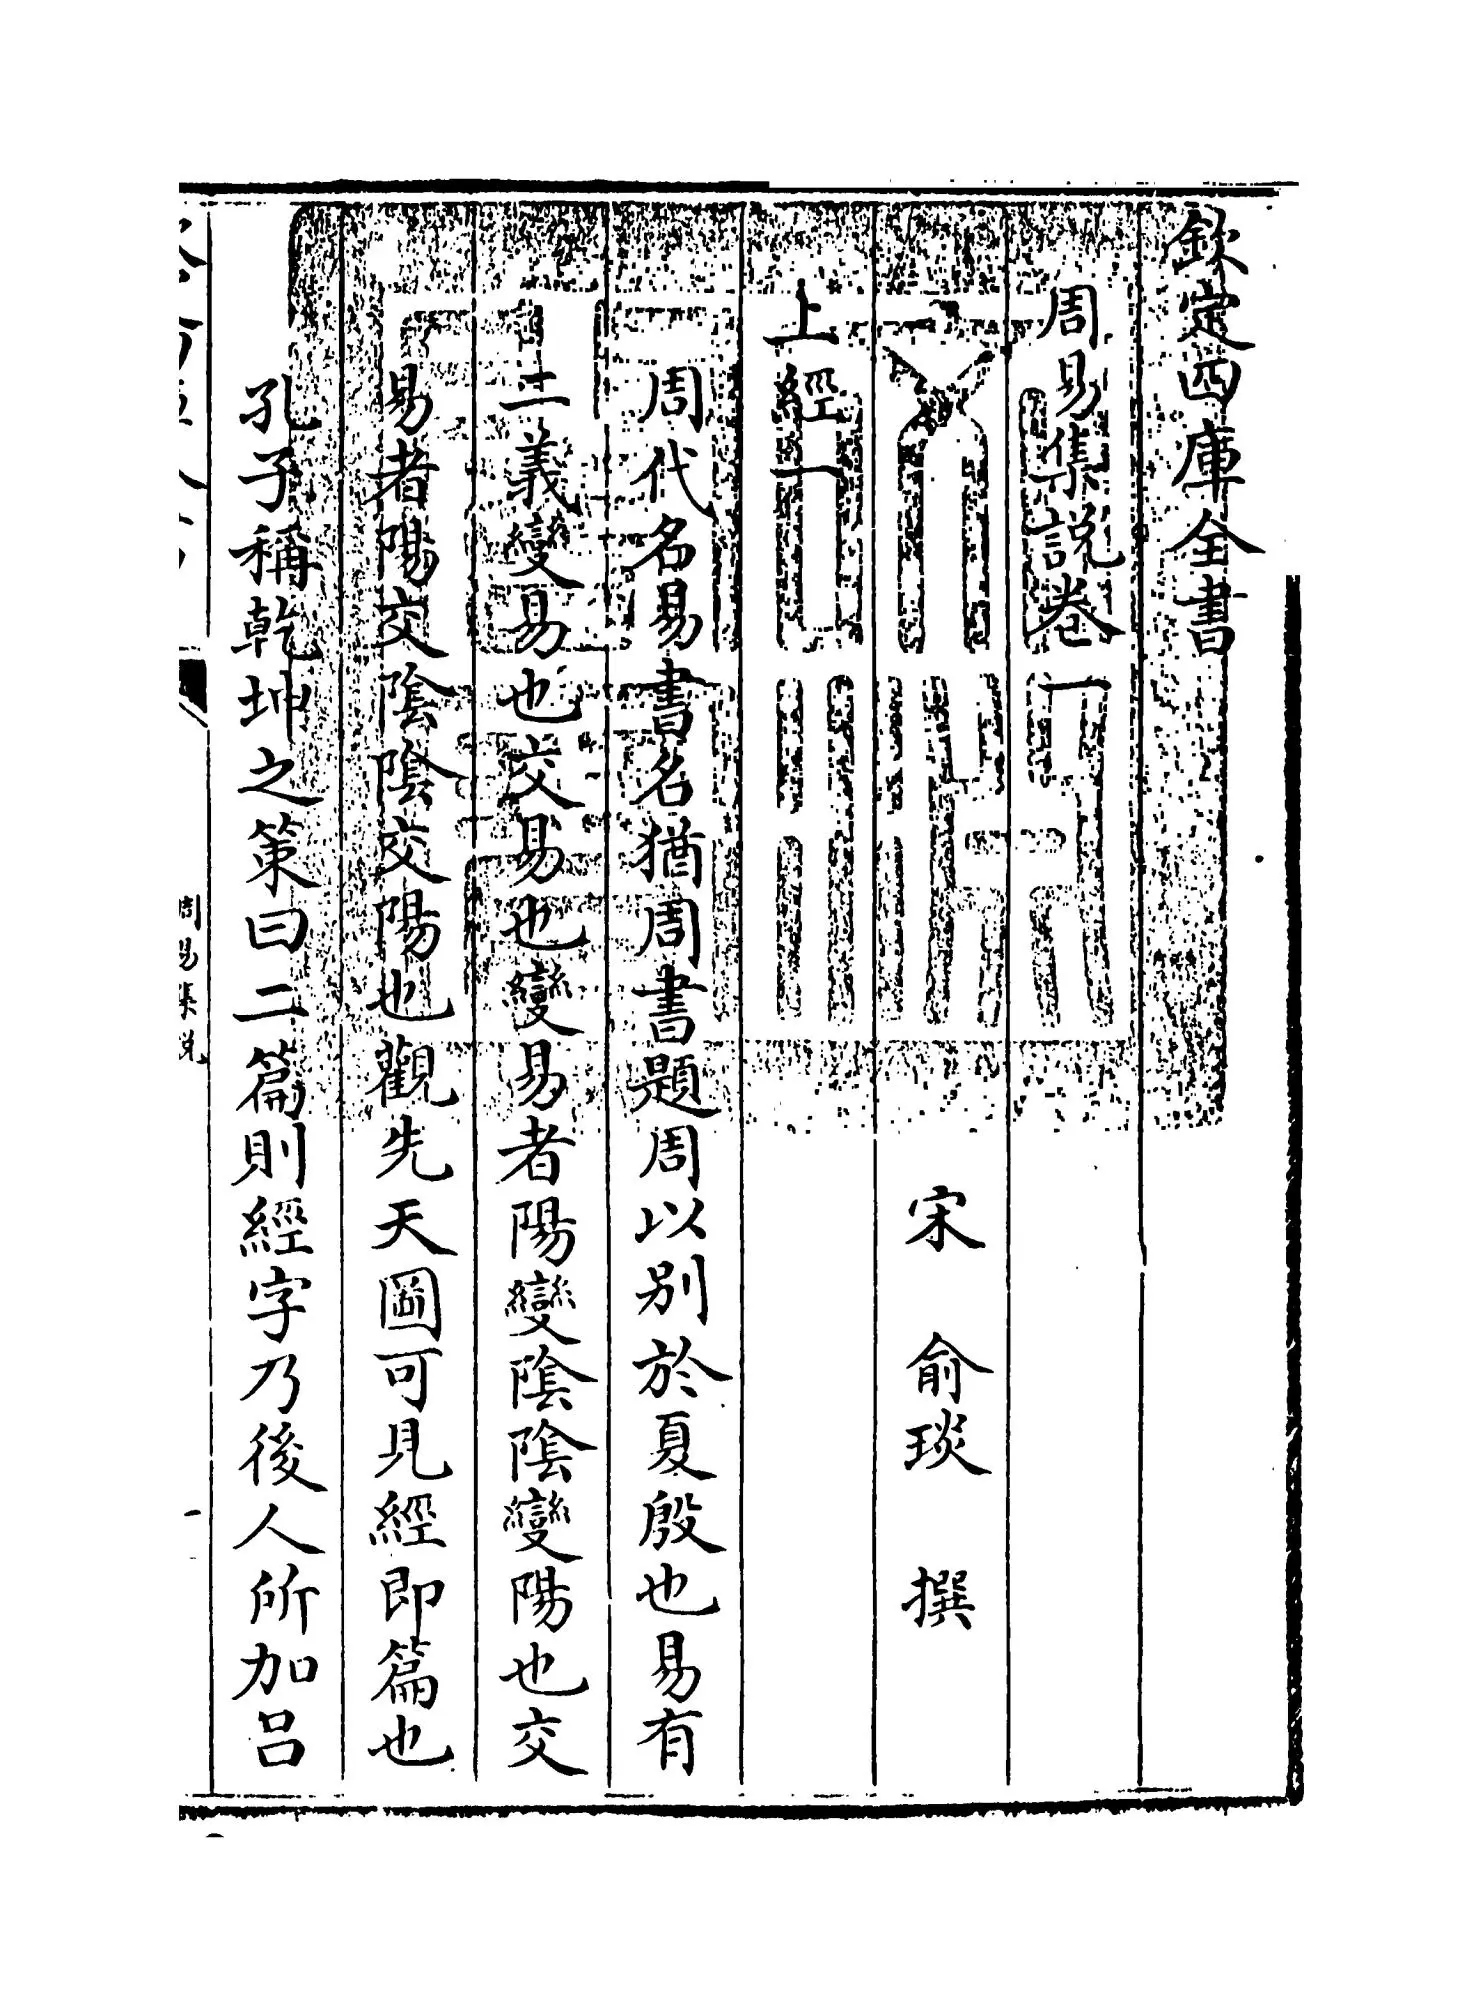 欽定四庫全書
周易集說卷一
宋 俞琰 撰
上經一
周代名易書名猶周書題周以别於夏殷也易有
二義變易也交易也變易者陽變陰陰變陽也交
易者陽交陰陰交陽也觀先天圖可見經即篇也
孔子稱乾坤之策曰二篇則經字乃後人所加吕
周易集說